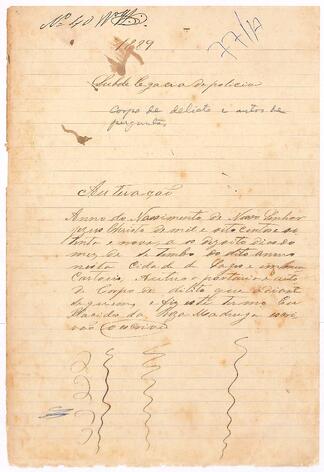 Nº 40
77/17
1889
Subdelegacia de policia
Corpo de delicto e autos de
perguntas
Autuação
Anno do Nascimento de Nosso Senhor
Jesus Christo de mil e oito centos e oi
tenta e nove, aos dezoito dias do
mez de Setembro do dito anno
nesta Cidade de Lages em meu
Cartorio, Autuei a portaria e auto
de Corpo de delito que adiante
seguem; e fiz este termo Eu
da Roza Madruga escri
vão o escrevi